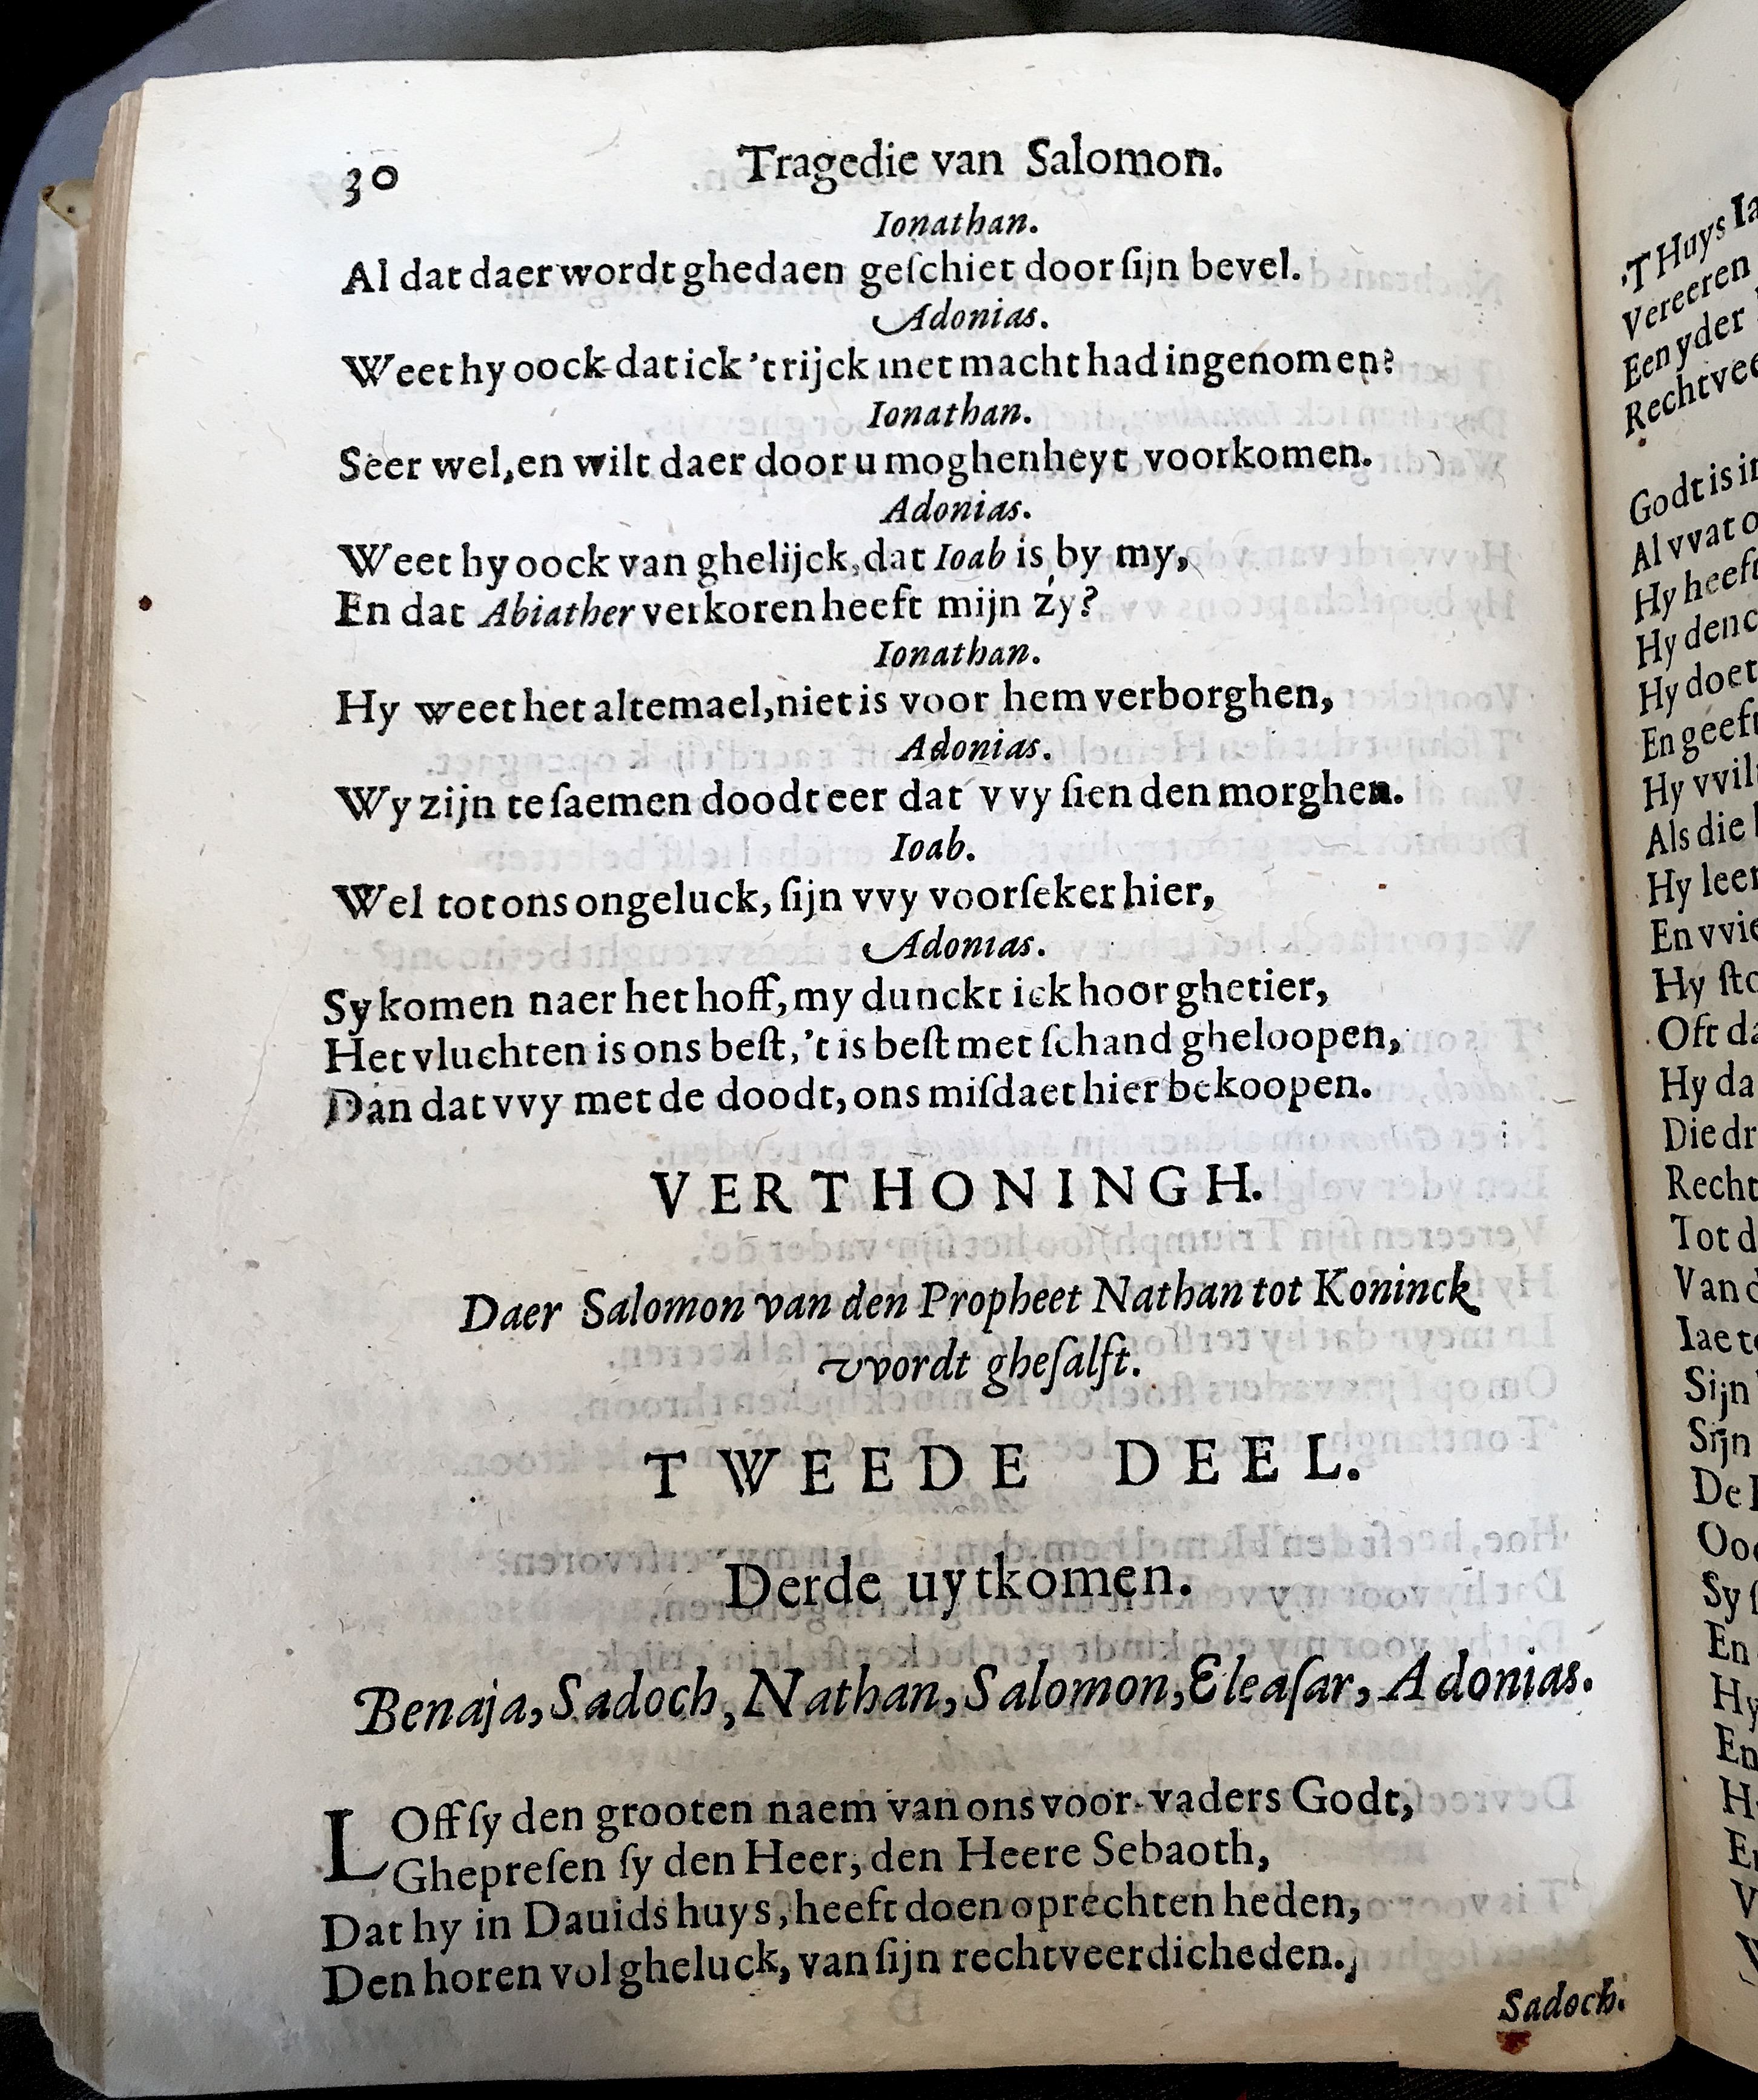 30 Tragedie van Salomon.
Ionathan.
Al dat daer wordt ghedaen geſchiet door ſijn bevel.
Adonias.
Weet hy oock dat ick 't rijck met macht had ingenomen?
Ionathan.
Seer wel, en wilt daer door u moghenheyt voorkomen.
Adonias.
Weet hy oock van ghelijck, dat Ioab is by my,
En dat Abiather verkoren heeft mijn zy?
Ionathan.
Hy weet het altemael, niet is voor hem verborghen,
Adonias.
Wy zijn te ſaemen doodt eer dat vvy ſien den morghen.
Ioab.
Wel tot ons ongeluck, ſijn vvy voorſeker hier,
Adonias.
Sy komen naer het hoff, my dunckt ick hoor ghetier,
Het vluchten is ons beſt, 't is beſt met ſchand gheloopen,
Dan dat vvy met de doodt, ons miſdaet hier bekoopen.
VERTHONINGH.
Daer Salomon van den Propheet Nathan tot Koninck
vvordt gheſalft.
TWEEDE DEEL.
Derde uytkomen.
Benaja, Sadoch, Nathan, Salomon, Eleaſar, Adonias.
LOff ſy den grooten naem van ons voor-vaders Godt,
Ghepreſen ſy den Heer, den Heere Sebaoth,
Dat hy in Dauids huys, heeft doen oprechten heden,
Den horen vol gheluck, van ſijn rechtveerdicheden.
Sadoch.
'T Huys
Vereeren
Een yder
Godt is
Al vvat
Hy heeft
Hy
Hy doet
En geeft
Hy
Als die
Hy
En
Hy
Oft
Hy
Die
Tot
Van
Sijn
Sijn
De
Sy
En
Hy